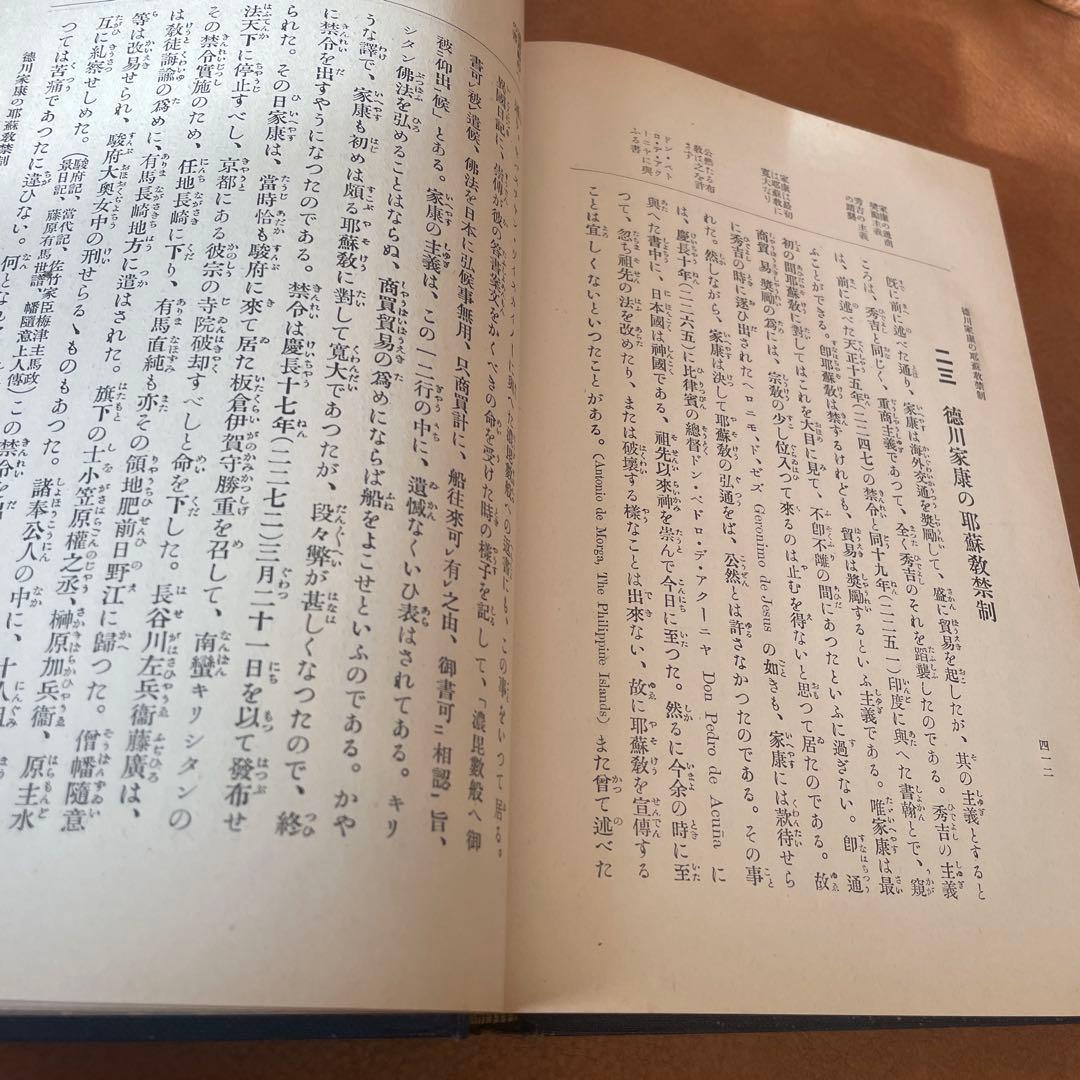 徳川家康の耶蘇教禁制
四一二
二三　徳川家康の耶蘇教禁制
家康の通商奬勵主義秀吉の主義の踏襲
家康は最初は耶蘇教に寛大なり
公然たる布教は之を許さず
ドン・ペドロ・デ・アクーニャに與ふる書
既に前に述べた通り、家康は海外交通を奬勵して、盛に貿易を起したが、其の主義とすると
ころは、秀吉と同じく、重商主義であつて、全く秀吉のそれを蹈襲したのである。秀吉の主義
は、前に述べた天正十五年(二二四七)の禁令と同十九年(二二五一)印度に與へた書翰とで、窺
ふことができる。卽耶蘇敎は禁ずけれども、貿易は奬勵するといふ主義である。唯家康は最
初の間耶蘇敎に對してはこれを大目に見て、不卽不離の間にあつたといふに過ぎない。卽通
商貿易奬勵の爲には、宗敎の少し位入つて來るのは止むを得ないと思つて居たのである。故
に秀吉の時に逐ひ出されたヘロニモ、ド、ゼズ Geronimo de Jesus の如きも、家康には款待せら
れた。然しながら、家康は決して耶蘇敎の弘通をば、公然とは許さなかつたのである。その事
は、慶長十年(二二六五)に比律賓の總督ドン・ペドロ・デ・アクーニャ Don Pedro de Acuña に
與へた書中に、日本國は神國である、祖先以來神を崇んで今日に至つた。然るに今余の時に至
つて、忽ち祖先の法を改めたり、または破壞する樣なことは出來ない、故に耶蘇敎を宣傳する
ことは宜しくないといつたことがある。(Antonio de Morga, The Philippine Islands) また曾て述べた
異國日記に、崇傳が彼の答書案文をかくべきの命を受けた味の樣子を記して、「濃毘數般へ御
書可レ被レ遣候、佛法を日本に弘候事無用、只商買計に、船往來可レ有レ之由、御書可ニ相認一旨、
被ニ仰出一候」とある。家康の主義は、この一二行の中に、遺憾なくいひ表はされてある。キリ
シタン佛法を弘めることはならぬ、商買貿易の爲めにならば船をよこせといふのである。かや
うな譯で、家康も初めは頗る耶蘇敎に對して寛大であつたが、段々弊が甚しくなつたので、終
に禁令を出すやうになつたのである。禁令は慶長十七年(二二七二)三月二十一日を以て發布せ
られた。その日家康は、當時恰も駿府に來て居た板倉伊賀守勝重を召して、南蠻キリシタンの
法天下に停止すべし、京都にある彼宗の寺院破却すべしと命を下した。長谷川左兵衞藤廣は、
その禁令實施のため、任地長崎に下り、有馬直純も亦その領地肥前日野江に歸つた。僧幡隨意
は敎徒誨諭の爲めに、有馬長崎地方に遣はされた。旗下の士小笠原權之丞、榊原加兵衞、原主水
等は改易せられ、駿府大奥女中の刑せらるゝものもあつた。諸奉公人の中に、十人組
互に糺察せしめた。(駿府記、當代記、佐竹家臣梅津主馬政景日記、藤原有馬世譜、幡隨意上人傳)この禁令を
つては苦痛であつたに違ひない。何と
徳川家康の耶蘇敎禁制